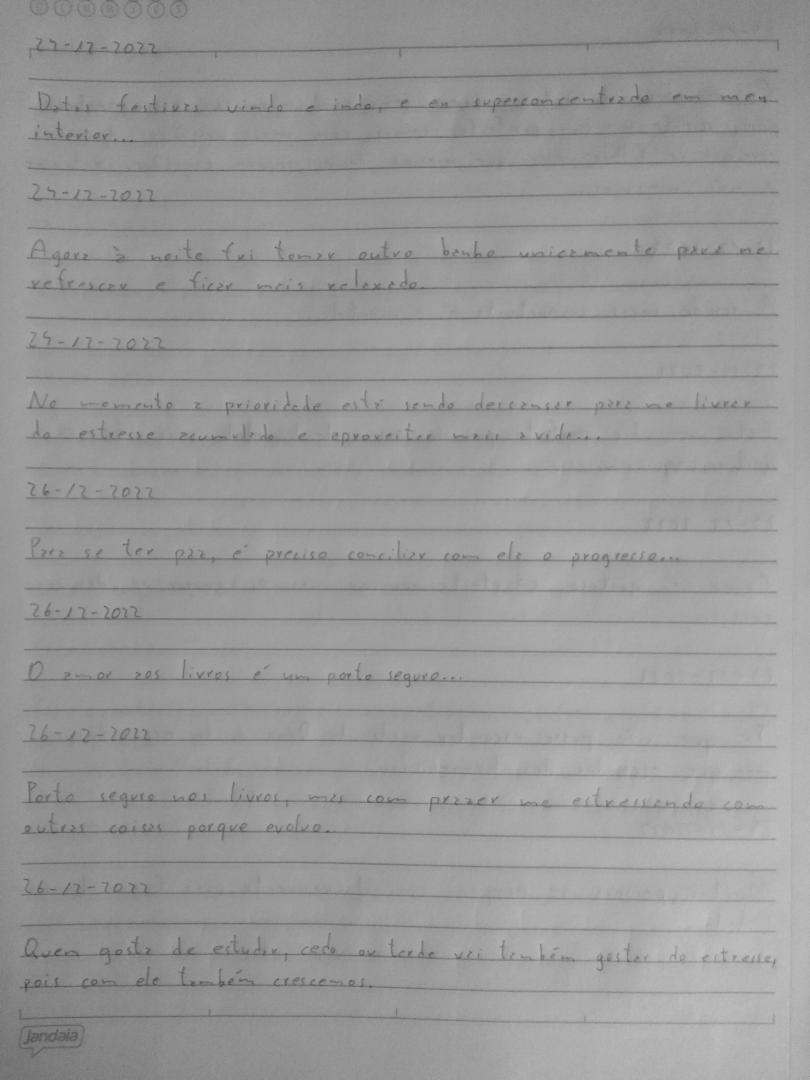 24-12-2022
Datas festivas vindo e indo, e eu superconcentrado em meu
interior...
24-12-2022
Agora à noite fui tomar outro banho unicamente para me
refrescar e ficar mais relaxado.
24-12-2022
No momento a prioridade está sendo descansar para me livrar
do estresse acumulado e aproveitar mais a vida...
26-12-2022
Para se ter paz, é preciso conciliar com ela o progresso...
26-12-2022
O amor aos livros é um porto seguro...
26-12-2022
Porto seguro nos livros, mas com prazer me estressando com
outras coisas porque evoluo.
26-12-2022
Quem gosta de estudar, cedo ou tarde vai também gostar do estresse,
pois com ele também crescemos.
Jandaia